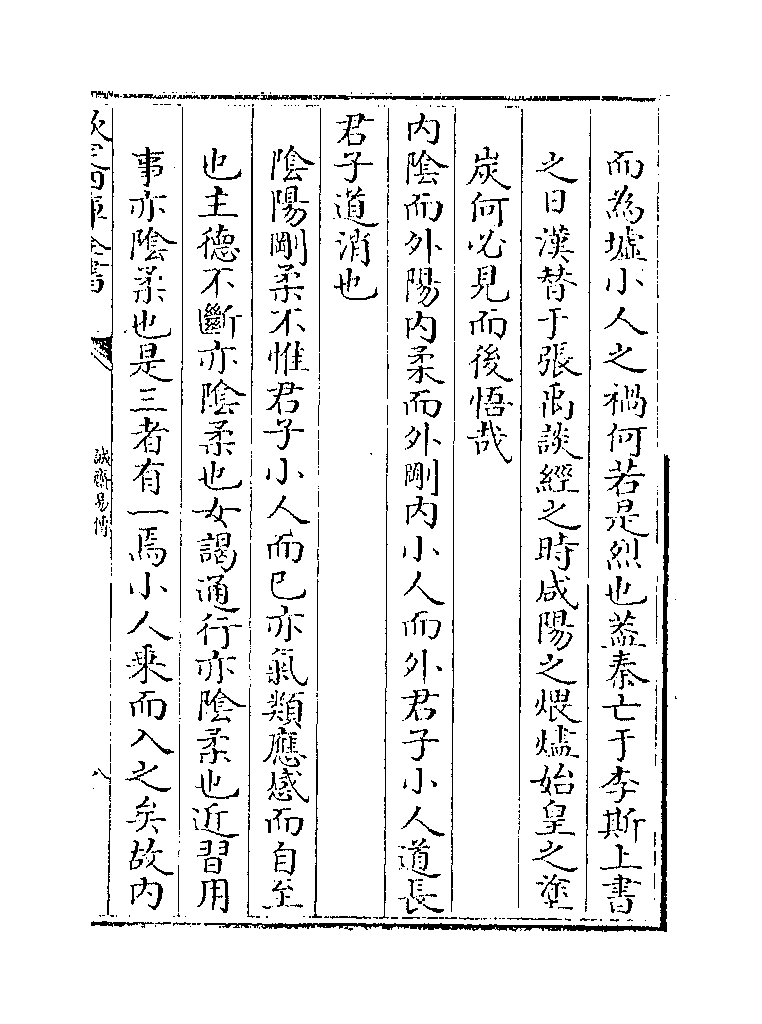 而為墟小人之禍何若是烈也葢秦亡于李斯上書
之日漢替于張禹談經之時咸陽之煨燼始皇之塗
炭何必見而後悟哉
内陰而外陽内柔而外剛内小人而外君子小人道長
君子道消也
陰陽剛柔不惟君子小人而已亦氣類應感而自至
也主德不斷亦陰柔也女謁通行亦陰柔也近習用
事亦陰柔也是三者有一焉小人乗而入之矣故内
欽定四庫全書
誠齋易傳
八